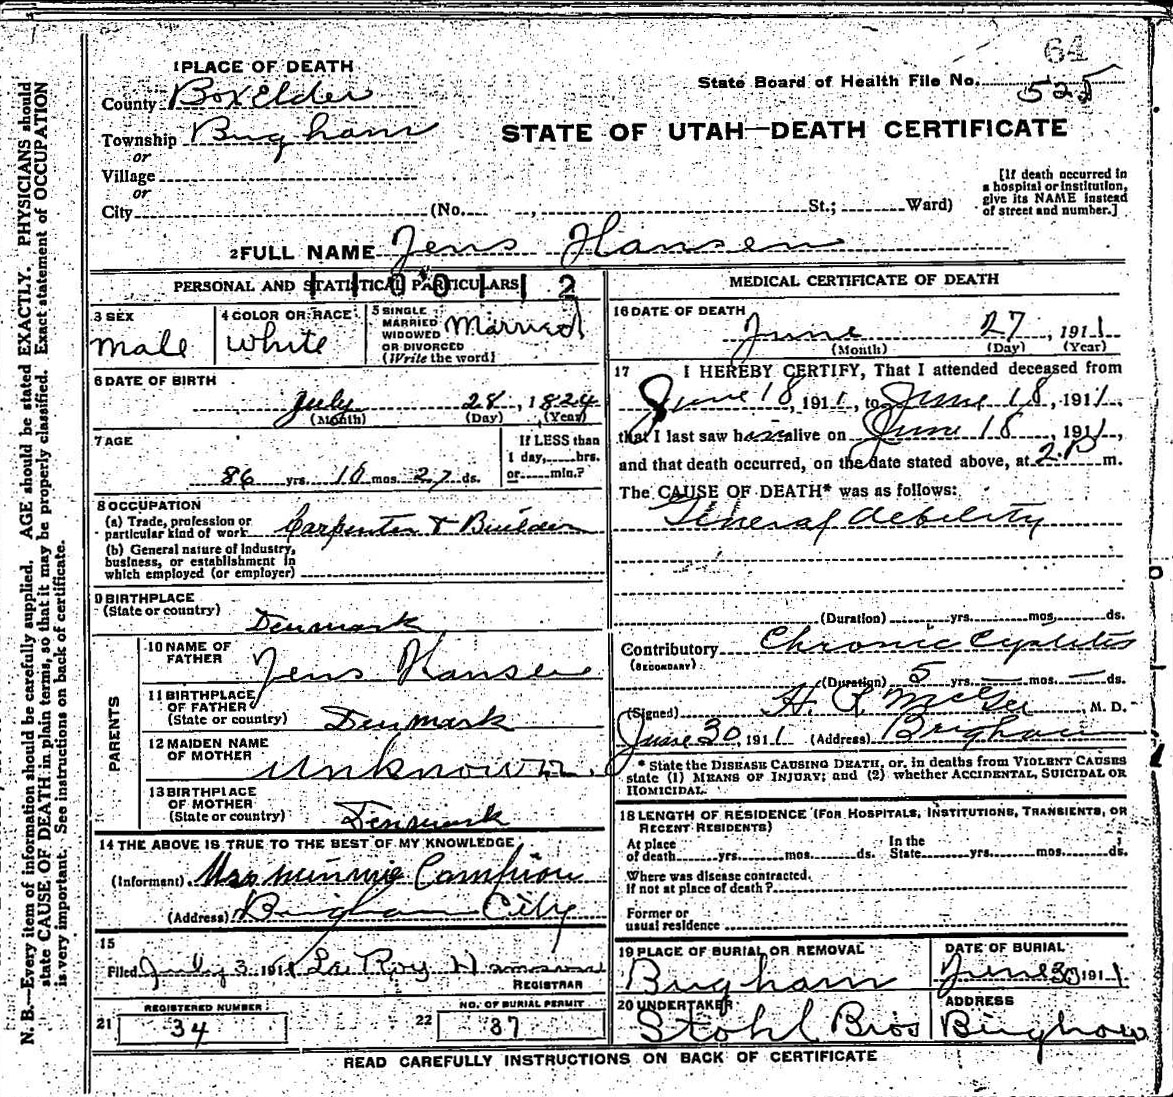 64
1 PLACE OF DEATH
State Board of Health File No. 525
County Box Elder
Township Brigham
STATE OF UTAH—DEATH CERTIFICATE
or
Village
or
City (No. , St.; Ward)
[If death occurred in
a hospital or institution,
give its NAME instead
of street and number.]
2 FULL NAME Jens Hansen
PERSONAL AND STATISTICAL PARTICULARS
3 SEX
male
4 COLOR OR RACE
White
5 SINGLE
MARRIED
WIDOWED
OR DIVORCED
(Write the word)
Married
6 DATE OF BIRTH
July 28, 1824
(Month) (Day) (Year)
7 AGE
86 yrs. 10 mos. 27 ds.
If LESS than
1 day, hrs.
or min.?
8 OCCUPATION
(a) Trade, profession or
particular kind of work Carpenter & Builder
(b) General nature of Industry,
business, or establishment in
which employed (or employer)
9 BIRTHPLACE
(State or country)
Denmark
PARENTS
10 NAME OF
FATHER
Jens Hansen
11 BIRTHPLACE
OF FATHER
(State or country)
Denmark
12 MAIDEN NAME
OF MOTHER
Unknown
13 BIRTHPLACE
OF MOTHER
(State or country)
Denmark
14 THE ABOVE IS TRUE TO THE BEST OF MY KNOWLEDGE
(Informant) Mrs Minnie Campion
(Address) Brigham City
15
Filed July 3 191 Le Roy
REGISTRAR
REGISTERED NUMBER
21 34
NO. OF BURIAL PERMIT
22 37
MEDICAL CERTIFICATE OF DEATH
16 DATE OF DEATH
June 27, 1911
(Month) (Day) (Year)
17 I HEREBY CERTIFY, That I attended deceased from
June 18, 1911, to June 18, 1911,
that I last saw him alive on June 18, 1911,
and that death occurred, on the date stated above, at 2 P m.
The CAUSE OF DEATH* was as follows:
General debility
(Duration) yrs. mos. ds.
Contributory Chronic Cystitis
(SECONDARY)
(Duration) 5 yrs. — mos. — ds.
(Signed) H. , M. D.
June 30, 1911 (Address) Brigham
* State the DISEASE CAUSING DEATH, or, in deaths from VIOLENT CAUSES
state (1) MEANS OF INJURY; and (2) whether ACCIDENTAL, SUICIDAL OR
HOMICIDAL.
18 LENGTH OF RESIDENCE (FOR HOSPITALS, INSTITUTIONS, TRANSIENTS, OR
RECENT RESIDENTS)
At place
of death yrs. mos. ds.
In the
State yrs. mos. ds.
Where was disease contracted.
if not at place of death?
Former or
usual residence
19 PLACE OF BURIAL OR REMOVAL
Brigham
DATE OF BURIAL
June 30 1911
20 UNDERTAKER
Stohl Bros
ADDRESS
Brigham
READ CAREFULLY INSTRUCTIONS ON BACK OF CERTIFICATE
N. B.—Every item of information should be carefully supplied. AGE should be stated EXACTLY. PHYSICIANS should
state CAUSE OF DEATH in plain terms, so that it may be properly classified. Exact statement of OCCUPATION
is very important. See instructions on back of certificate.